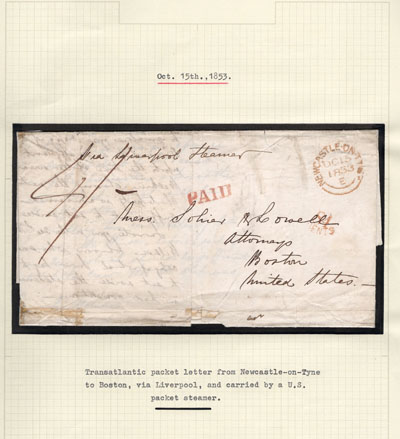 Oct. 15th.,1853.
Via Liverpool Steamer
NEWCASTLE-ON-TYNE
OC 15
1853
E
PAID
Mess. Sohier & Lowell
Attorneys
Boston
United States.
CENTS
Transatlantic packet letter from Newcastle-on-Tyne
to Boston, via Liverpool, and carried by a U.S.
packet steamer.